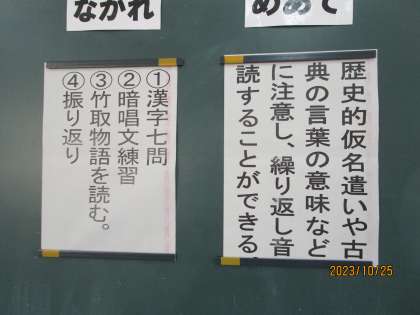 めあて
歴史的仮名遣いや古
典の言葉の意味など
に注意し、繰り返し音
読することができる。
ながれ
①漢字七問
②暗唱文練習
③竹取物語を読む。
④振り返り
2023/10/25